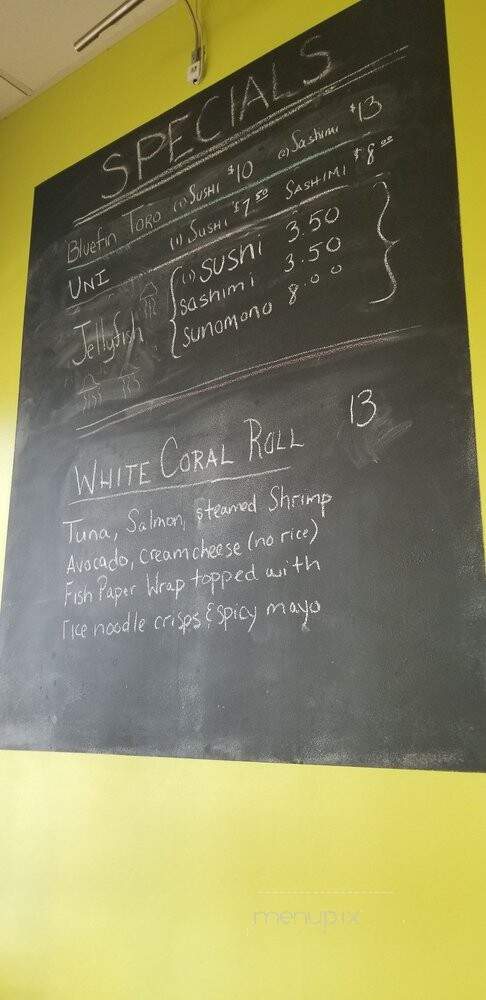 SPECIALS
Bluefin Toro (1) Sushi $10 (2) Sashimi $13
UNI (1) Sushi $7.50 Sashimi $8.00
Jellyfish (1) sushi 3.50
sashimi 3.50
sunomono 8.00
White Coral Roll 13
Tuna, Salmon, steamed Shrimp
Avocado, creamcheese (no rice)
Fish Paper Wrap topped with
rice noodle crisps & spicy mayo
menupix